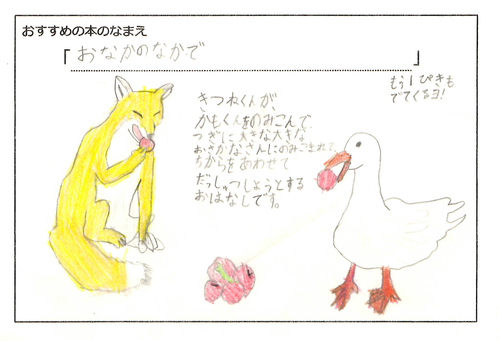 おすすめの本のなまえ
「おなかのなかで」
もう1ぴきも
でてくるヨ!
きつねくんが、
かもくんをのみこんで
つぎに大きな大きな
おさかなさんにのみこまれて
ちからをあわせて
だっしゅつしようとする
おはなしです。